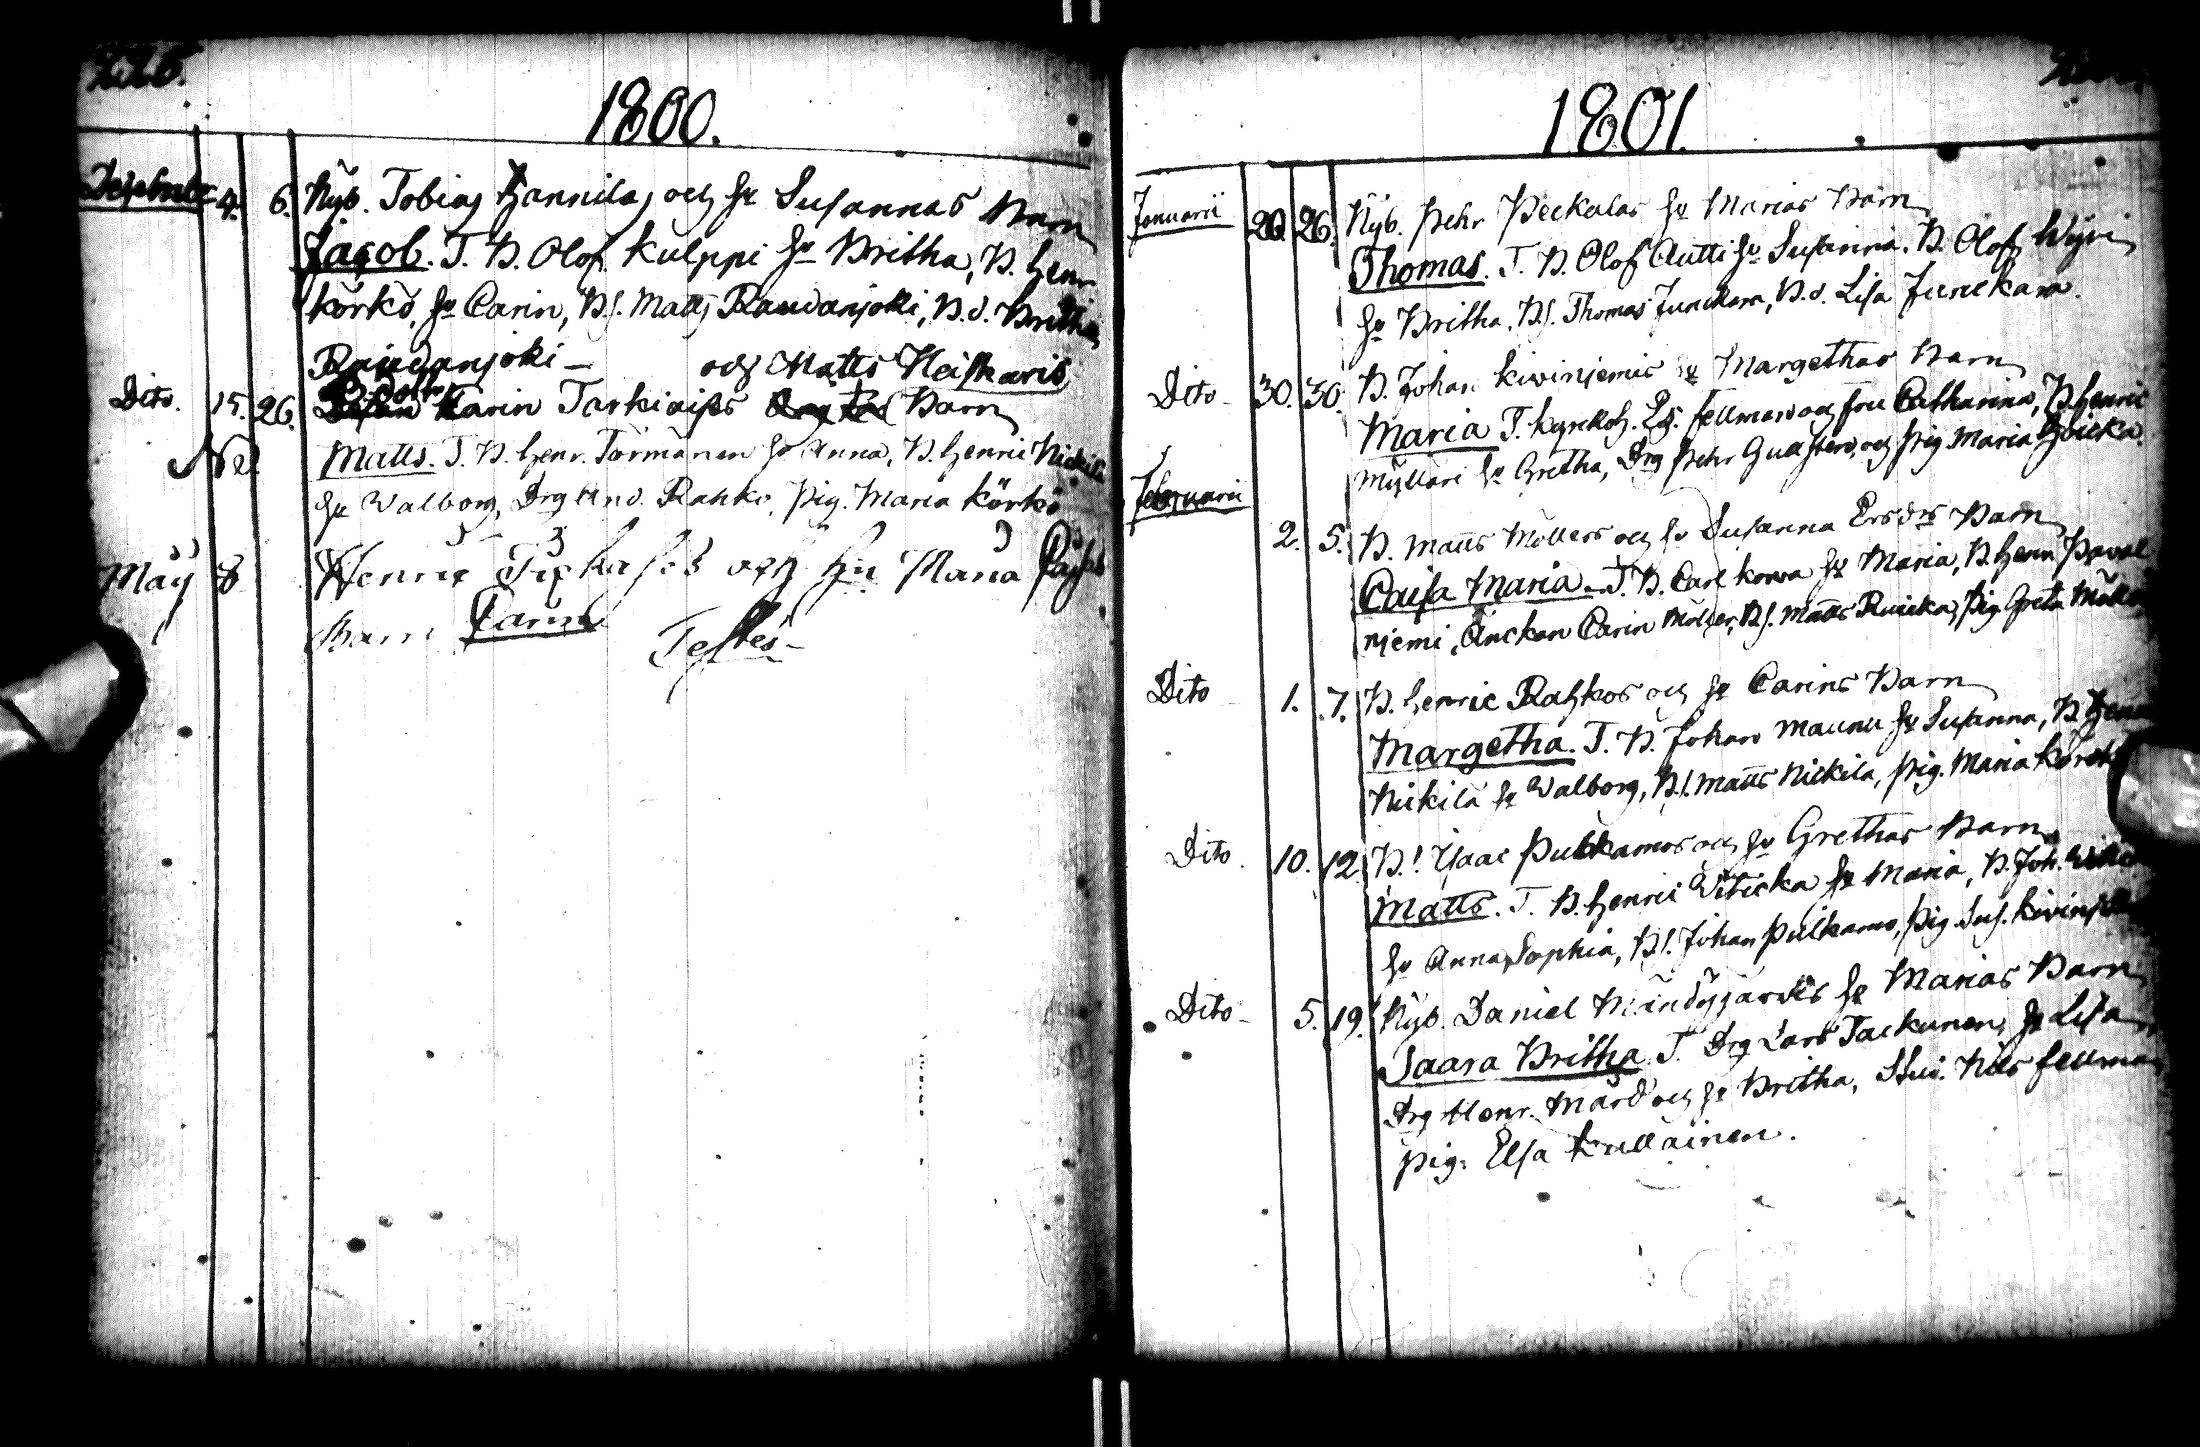 226.
1800.
Desember 4. 6. Nyb. Tobias Hannilas och hu Susannas Barn
Jacob. T. B. Olof Kulppi hu Britha, B. Henr
Körkö, hu Carin, B.s. Matts Raudanjoki, B.d. Britha
Raudanjoki — och Matts Heiskaris
Dito. 15. 26. B. dottr Carin Tarkiaises Barn
Matts. T. B. Henr. Törmänen hu Anna, B. Henric Nickilä
hu Walborg, Drg And. Rahko, Pig. Maria Körkö
May 8 Henric och hu Maria
Barn Carin
Testes —
1801.
Januarii 20. 26. Nyb. Pehr Peckalas hu Marias Barn
Thomas. T. B. Olof Autti hu Susanna. B. Olof
hu Britha, B.s. Thomas Junckara, B.d. Lisa Junckara.
Dito 30. 30. B. Johan Kiviniemis hu Margethas Barn
Maria T. Kyrckoh. Es. Fellman och fru Catharina, B. Henric
Myllari hu Gretha, Drg Pehr och Pig Maria
Februarii
2. 5. B. Matts Möllers och hu Susanna Ersdrs Barn
Caisa Maria. T. B. Carl Korva hu Maria, B. Henr Paval
njemi, Änckan Carin Möller, B.s. Matts Ruicka, Pig. Greta Möller
Dito 1. 7. B. Henric Rahkos och hu Carins Barn
Margetha. T. B. Johan Maunu hu Susanna, B. Henr
Nickilä hu Walborg, B.s. Matts Nickilä, Pig. Maria Körkö
Dito. 10. 12. B.s. Isaac Pulkamos och hu Grethas Barn
Matts. T. B. Henric Viticka hu Maria, B. Joh.
hu Anna Sophia, B.s. Johan Pulkamo, Pig. Sus.
Dito 5. 19. Nyb. Daniel Mändyjärvis hu Marias Barn
Saara Britha T. Drg Lars Tackunen, hu Lisa
Drg Henr. Mård och hu Britha, Stud. Nils Fellman
Pig. Elsa Kulläinen.